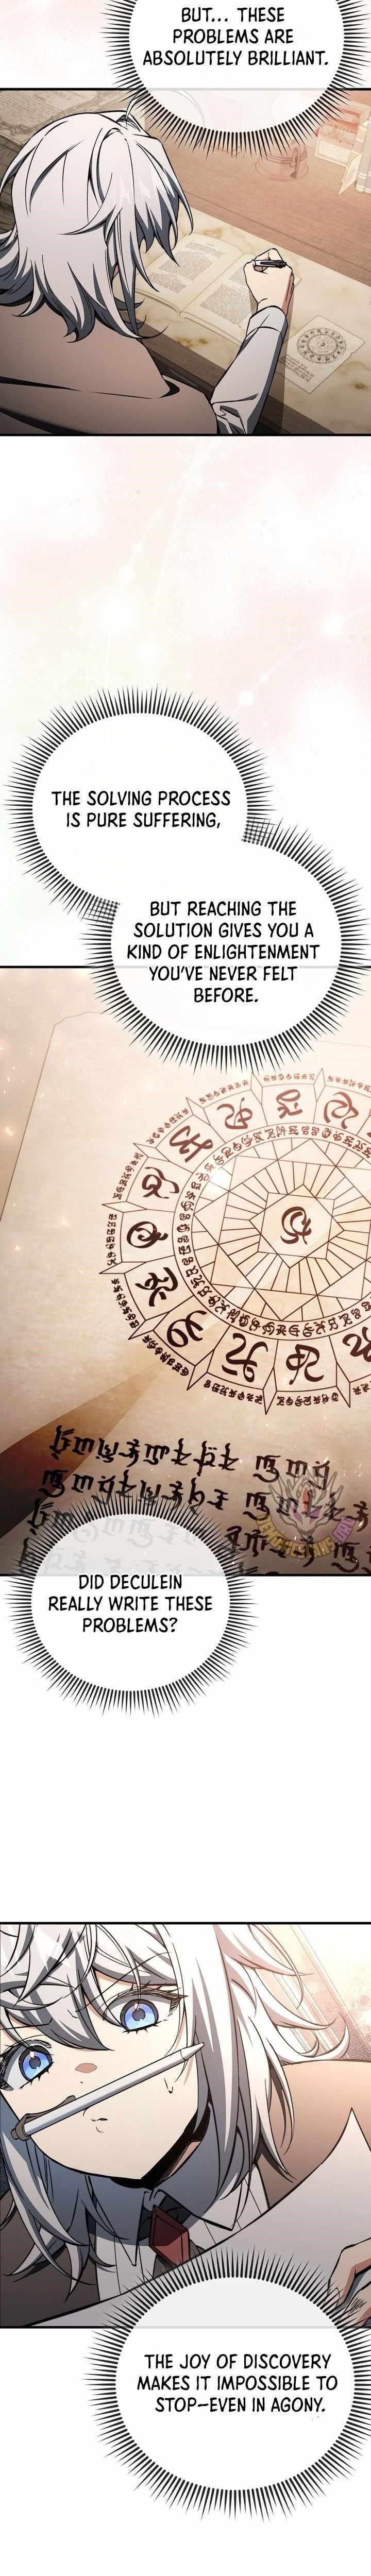 BUT... THESE
PROBLEMS ARE
ABSOLUTELY BRILLIANT.
THE SOLVING PROCESS
IS PURE SUFFERING,
BUT REACHING THE
SOLUTION GIVES YOU A
KIND OF ENLIGHTENMENT
YOU'VE NEVER FELT
BEFORE.
DID DECULEIN
REALLY WRITE THESE
PROBLEMS?
THE JOY OF DISCOVERY
MAKES IT IMPOSSIBLE TO
STOP-EVEN IN AGONY.